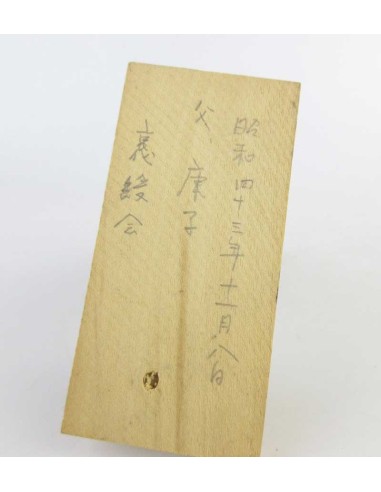 昭和四十三年十一月八日
父、康子
褒綬会